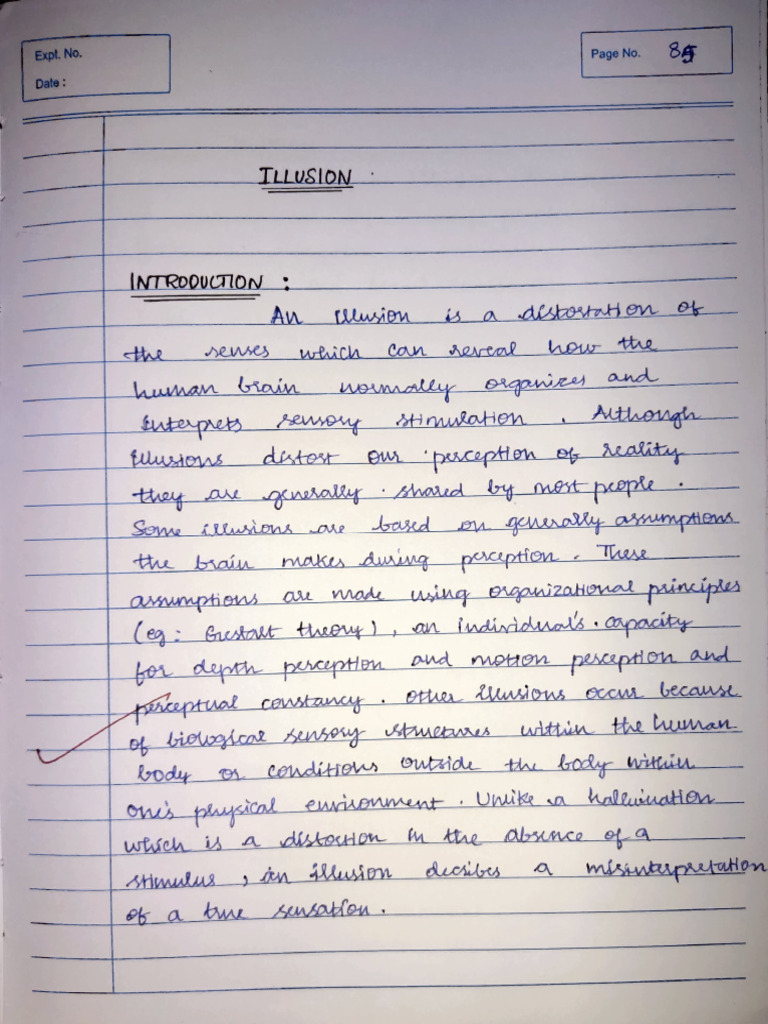 Expt. No.
Page No. 85
Date :
ILLUSION
INTRODUCTION :
An illusion is a distostation of
the senses which can reveal how the
human brain normally organizes and
interprets sensory stimulation . Although
illusions distort our perception of reality
they are generally shared by most people .
Some illusions are based on generally assumptions
the brain makes during perception . These
assumptions are made using organizational principles
(eg : Gestalt theory) , an individual's capacity
for depth perception and motion perception and
perceptual constancy . Other illusions occur because
of biological sensory structures within the human
body or conditions outside the body within
one's physical environment . Unlike a hallucination
which is a distortion in the absence of a
stimulus , an illusion decribes a misinterpretation
of a true sensation .